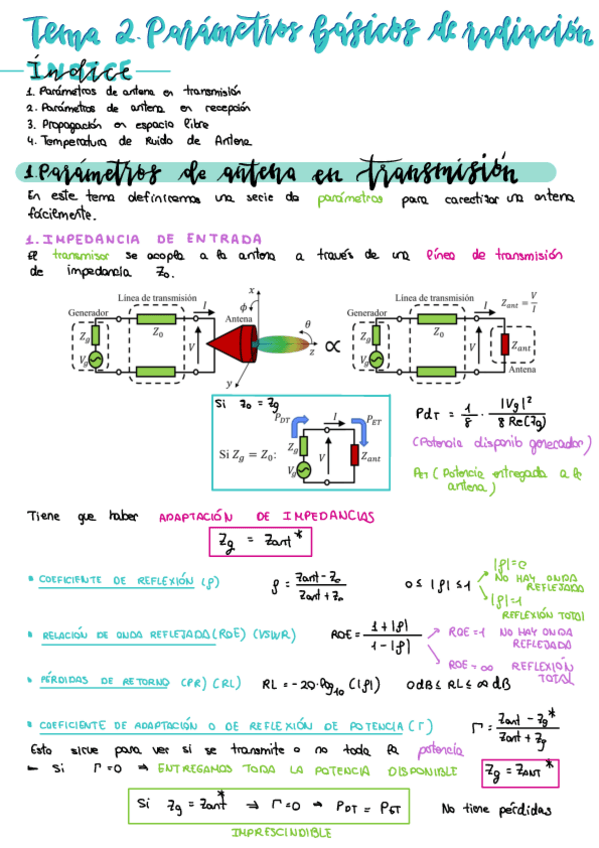 Tema 2. Parámetros básicos de radiación
Índice
1. Parámetros de antena en transmisión
2. Parámetros de antena en recepción
3. Propagación en espacio libre
4. Temperatura de Ruido de Antena
1. Parámetros de antena en transmisión
En este tema definiremos una serie de parámetros para caractizar una antena
fácilmente.
1. IMPEDANCIA DE ENTRADA
El transmisor se acopla a la antena a través de una línea de transmisión
de impedancia Z₀.
Generador Línea de transmisión I Antena x ϕ θ z y Z_g V_g Z_0 V
∝
Generador Línea de transmisión I Z_ant = V/I Z_g V_g Z_0 V Z_ant Antena
Si Z₀ = Zg
P_DT I P_ET
Si Z_g = Z_0: Z_g V_g V Z_ant
PdT = 1/8 · |Vg|²/8 Re(Zg)
(Potencia disponib generador)
PET (Potencia entregada a la
antena)
Tiene que haber ADAPTACIÓN DE IMPEDANCIAS
Zg = Zant*
• COEFICIENTE DE REFLEXIÓN (ρ) ρ = Zant - Z₀ / Zant + Z₀ 0 ≤ |ρ| ≤ 1
|ρ|=0
NO HAY ONDA
REFLEJADA
|ρ|=1
REFLEXIÓN TOTAL
• RELACIÓN DE ONDA REFLEJADA (ROE) (VSWR) ROE = 1+|ρ| / 1-|ρ|
ROE=1 NO HAY ONDA
REFLEJADA
ROE = ∞ REFLEXIÓN
TOTAL
• PÉRDIDAS DE RETORNO (PR) (RL) RL = -20·log₁₀ (|ρ|) 0dB ≤ RL ≤ ∞ dB
• COEFICIENTE DE ADAPTACIÓN O DE REFLEXIÓN DE POTENCIA (Γ) Γ = Zant - Zg* / Zant + Zg
Esto sirve para ver si se transmite o no toda la potencia
– Si Γ=0 → ENTREGAMOS TODA LA POTENCIA DISPONIBLE Zg = ZANT*
Si Zg = Zant* ⇒ Γ=0 → PDT = PET No tiene pérdidas
IMPRESCINDIBLE